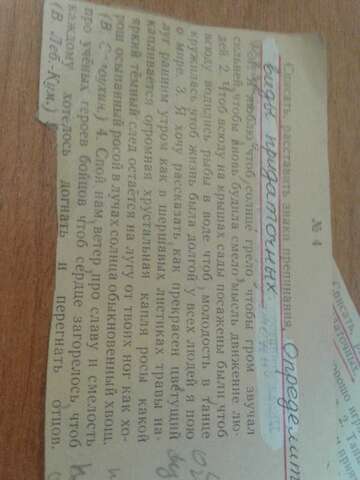 № 4
Списать, расставить знаки препинания. Определит
виды придаточных.
люблю чтоб солнце грело чтобы гром звучал
сильней чтобы вновь будила смело мысль движение лю-
дей. 2. Чтоб всюду на крышах сады посажены были чтоб
всюду водились рыбы в воде чтоб молодость в танце
кружилась чтоб жизнь была долгой у всех людей я пою
о мире. 3. Я хочу рассказать как прекрасен цветущий
луг ранним утром как в шершавых листиках травы на-
капливается огромная хрустальная капля росы какой
яркий тёмный след остаётся на лугу от твоих ног как хо-
рош осыпанный росой в лучах солнца обыкновенный хвощ.
(В. С ухин.) 4. Спой нам, ветер про славу и смелость
про учёных героев бойцов чтоб сердце загорелось чтоб
каждому хотелось догнать и перегнать отцов.
(В. Леб.-Кум.)